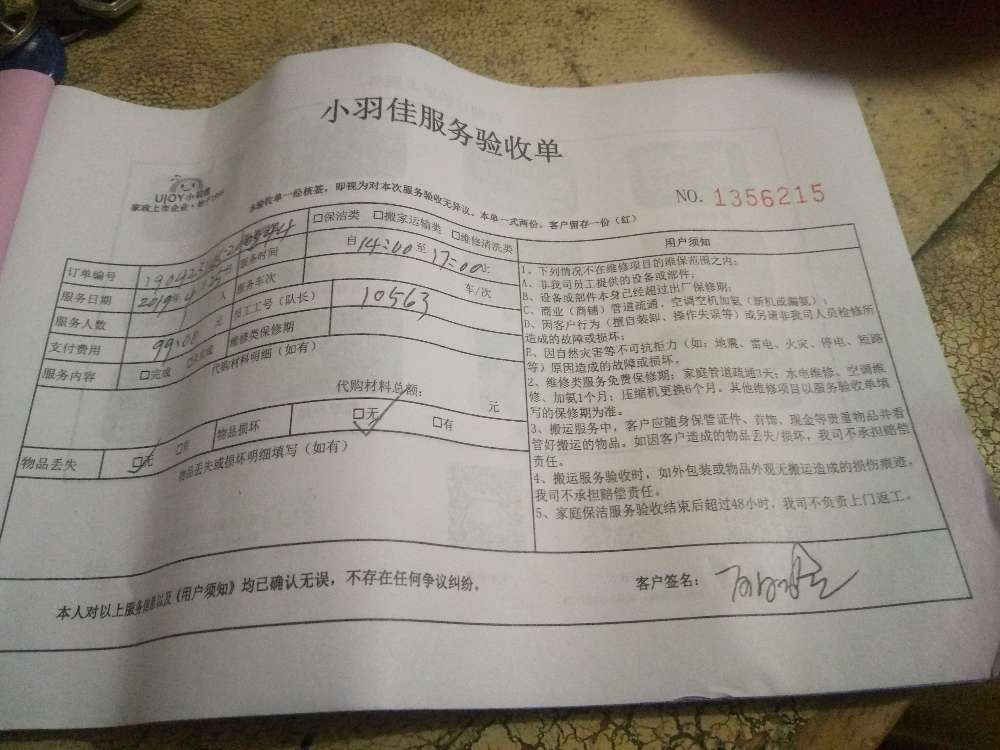 小羽佳服务验收单
UJOY小羽佳
家政上市企业·始于1998
NO. 1356215
本验收单一经核签，即视为对本次服务验收无异议。本单一式两份，客户留存一份（红）
订单编号
□保洁类 □搬家运输类 □维修清洗类
服务日期 2019年4 服务时间 自14:00至17:00止
服务人数 1 人 服务车次 车/次
支付费用 99.00 元 员工工号（队长） 10563
服务内容 □完成 □未完成 维修类保修期
代购材料明细（如有）
代购材料总额： 元
物品丢失 □无 □有 物品损坏 □无 □有
物品丢失或损坏明细填写（如有）
用户须知
1、下列情况不在维修项目的维保范围之内：
A、非我司员工提供的设备或部件；
B、设备或部件本身已经超过出厂保修期；
C、商业（商铺）管道疏通，空调空机加氨（新机或漏氨）；
D、因客户行为（擅自装卸、操作失误等）或另请非我司人员检修所
造成的故障或损坏；
E、因自然灾害等不可抗拒力（如：地震、雷电、火灾、停电、短路
等）原因造成的故障或损坏。
2、维修类服务免费保修期：家庭管道疏通3天；水电维修、空调维
修、加氨1个月；压缩机更换6个月。其他维修项目以服务验收单填
写的保修期为准。
3、搬运服务中，客户应随身保管证件、首饰、现金等贵重物品并看
管好搬运的物品。如因客户造成的物品丢失/损坏，我司不承担赔偿
责任。
4、搬运服务验收时，如外包装或物品外观无搬运造成的损伤痕迹，
我司不承担赔偿责任。
5、家庭保洁服务验收结束后超过48小时，我司不负责上门返工。
本人对以上服务信息以及《用户须知》均已确认无误，不存在任何争议纠纷。
客户签名：